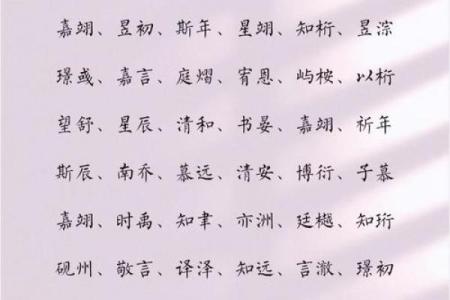 嘉翊、昱初、斯年、星翊、知桁、昱淙
璟彧、嘉言、庭熠、宥恩、屿桉、以桁
望舒、星辰、清和、书晏、嘉翊、祈年
斯辰、南乔、慕远、清安、博衍、子慕
嘉翊、时禹、知聿、亦洲、廷樾、知珩
砚州、敬言、译泽、知远、言澈、璟初